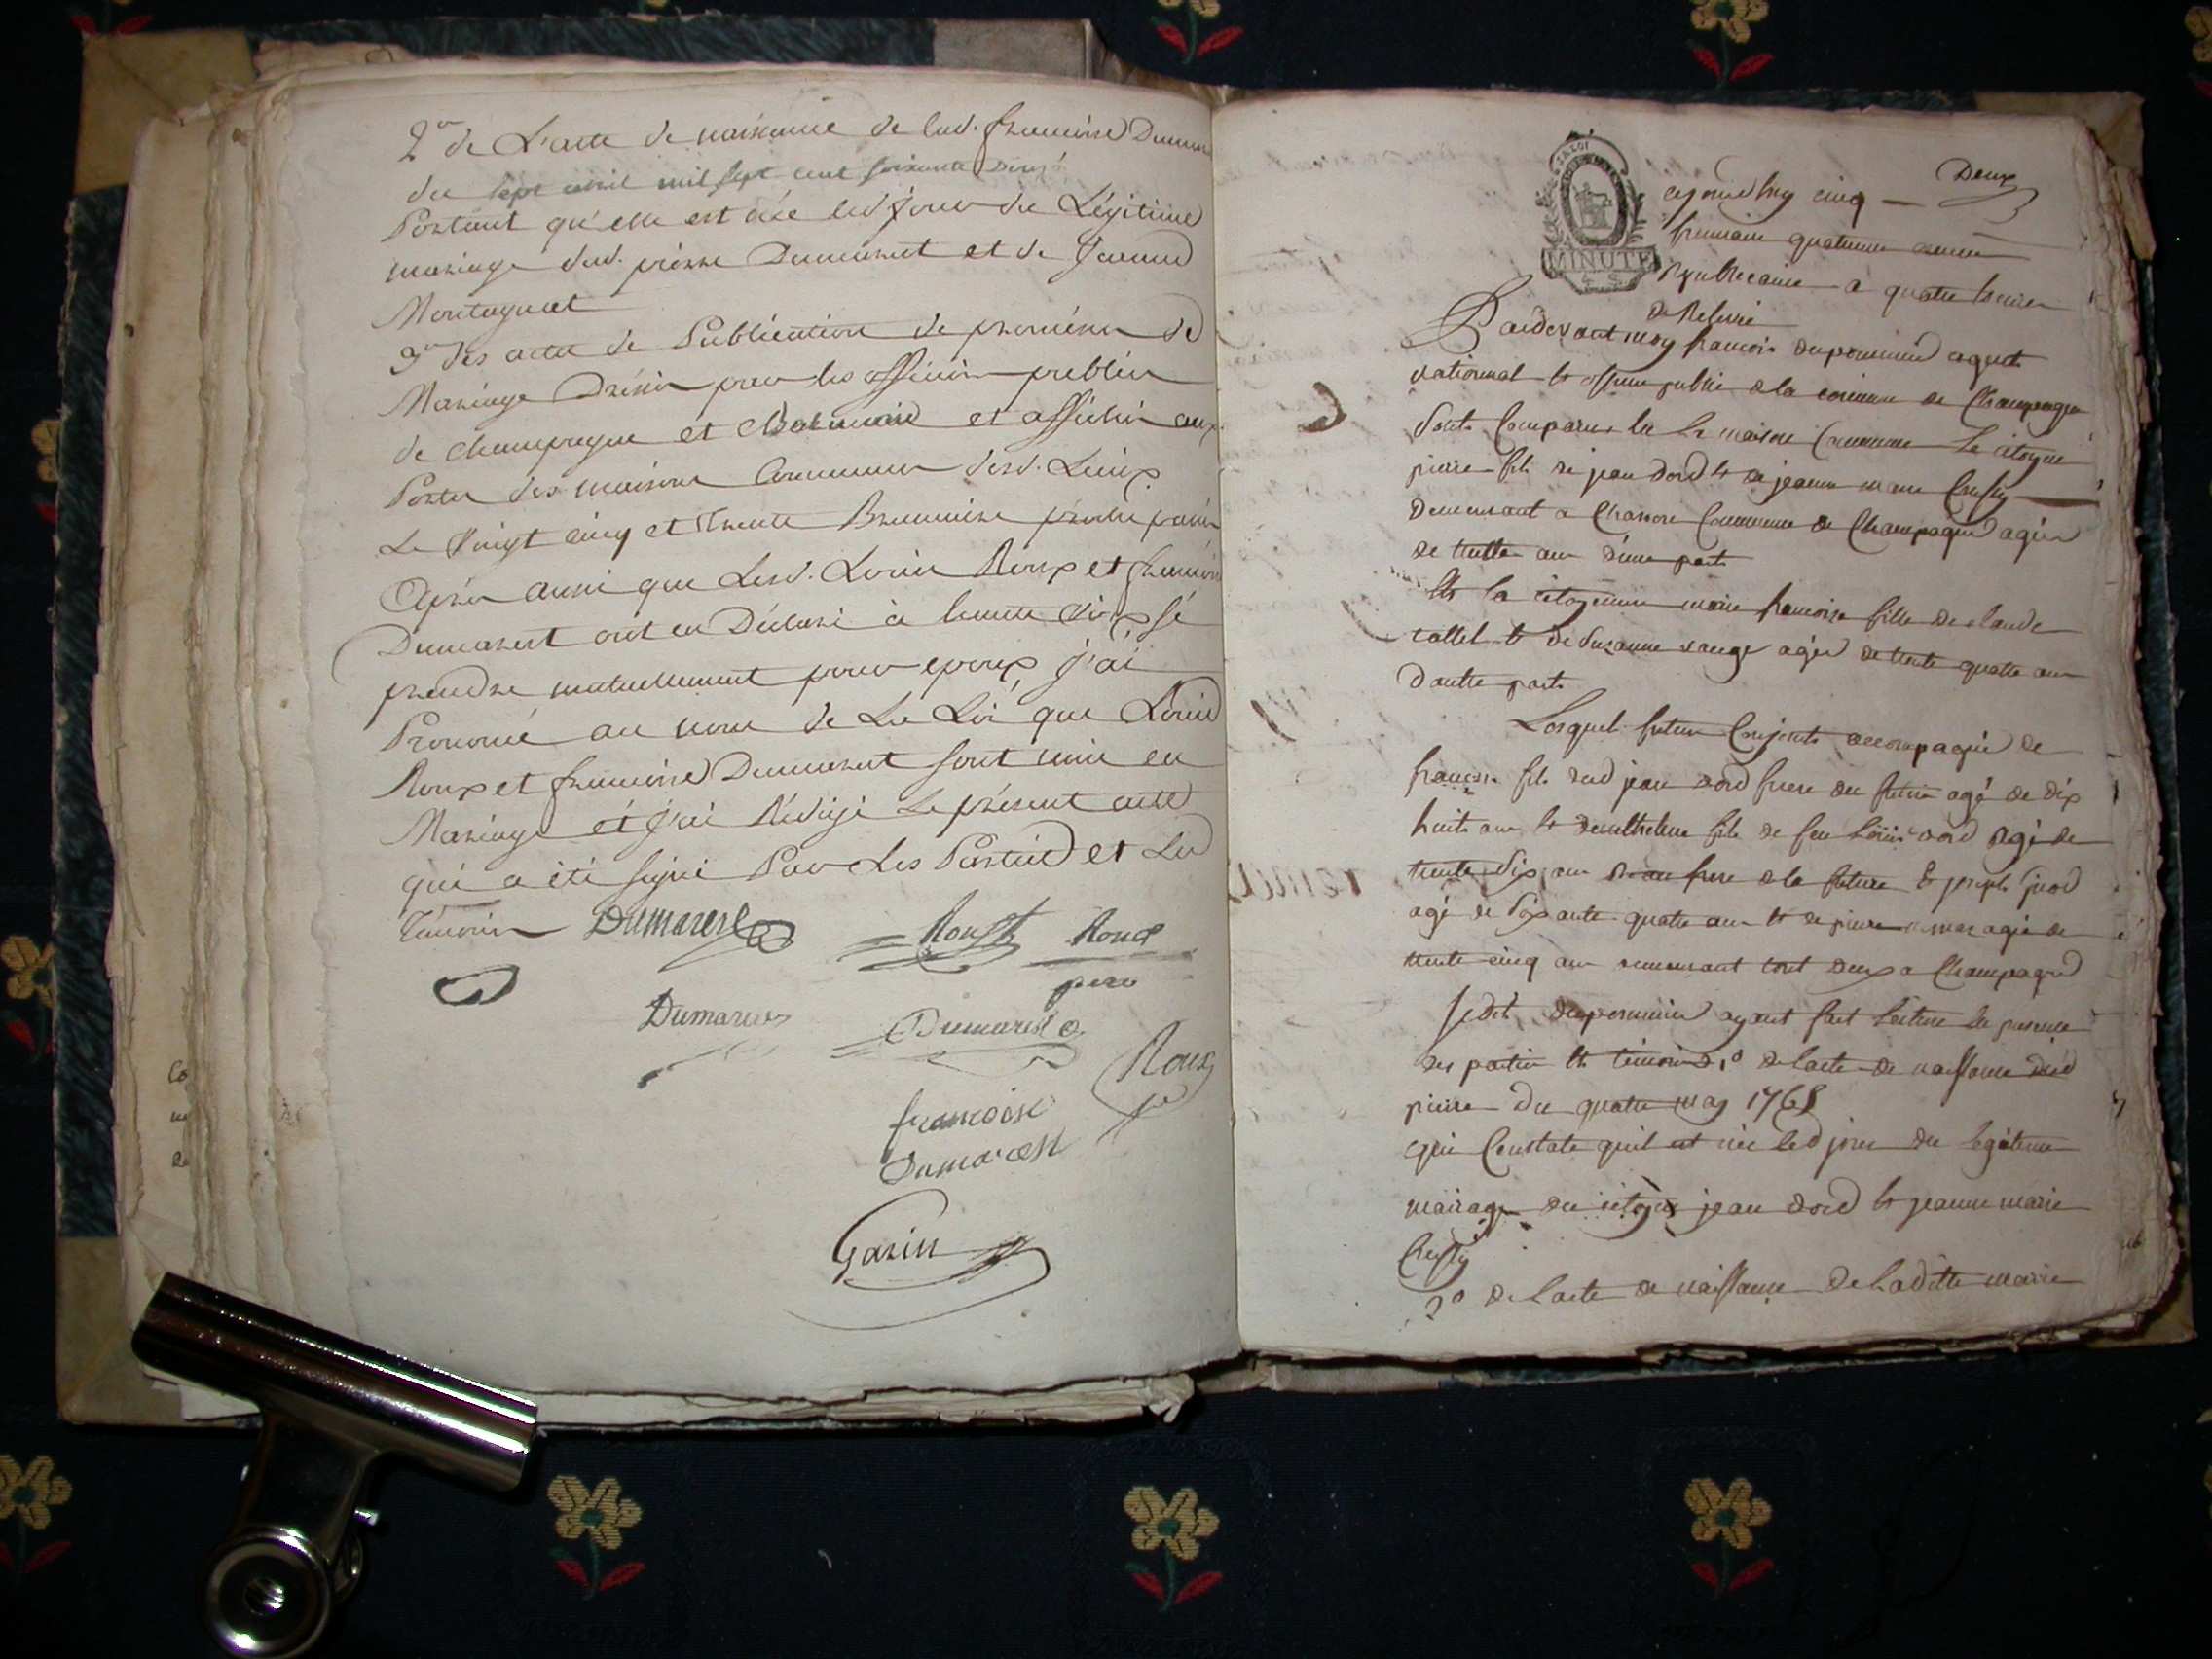 2° de L'acte de naissance de lad. françoise Dumar
du sept avril mil sept cent soixante douze
Portant qu'elle est née led. jour du Légitime
mariage dud. pierre Dumarest et de
Montagnat
3° des actes de Publication de promesse de
Mariage Dressés par les officiers publics
de champagne et et affichés aux
Portes des maisons Communes desd. Lieux
Le Vingt cinq et Trente Brumaire proche passé
Après aussi que Lesd. Louis Roux et françoise
Dumarest ont eu Déclaré à haute voix se
prendre mutuellement pour epoux j'ai
Prononcé au nom de La Loi que Louis
Roux et françoise Dumarest sont unis en
Mariage et j'ai Rédigé Le présent acte
qui a été signé Par Les Parties et Les
Témoins Dumarest Roux Roux
pere
Dumarest Dumarest
Roux
francoise
Dumarest
Garin
LA LOI
MINUTE
Deux
cejourdhuy cinq
frimaire quatrieme année
Republicaine a quatre heures
de Relevée
Pardevant moy francois agent
national et officier public de la commune de Champagne
sont Comparus en la maison Commune Le citoyen
pierre fils de jean dord et de jeanne marie
demeurant a Commune de Champagne agé
de trente ans d'une part
Et la citoyenne marie francoise fille de claude
et de Suzanne agée de trente quatre ans
d'autre part
Lesquels futurs Conjoints accompagné de
francois fils dud jean dord frere du futur agé de dix
huit ans et fils de feu Louis dord agé de
trente six ans Beau frere de la future & joseph
agé de soixante quatre ans et de pierre agé de
trente cinq ans demeurant tout deux a Champagne
Ledit ayant fait Lecture En presence
des parties et temoins 1° de lacte de naissance dud
pierre du quatre may 1768
qui Constate quil est née led jour du legitime
mariage du citoyen jean dord et jeanne marie
2° de lacte de naissance de Laditte marie